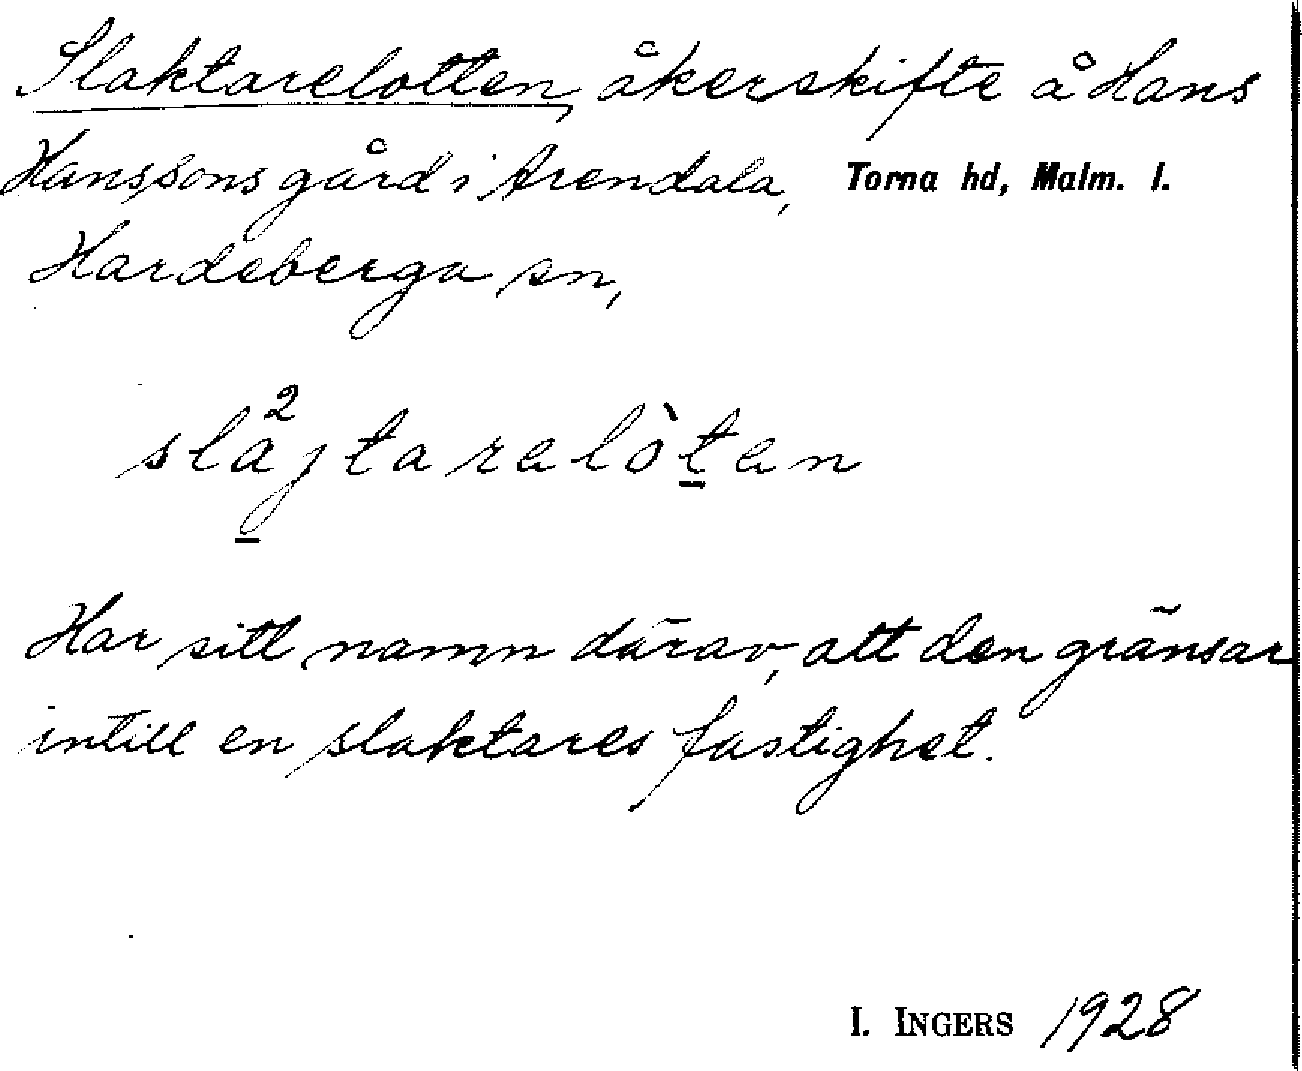 Slaktarelotten, åkerskifte å Hans
Hanssons gård i Arendala, Torna hd, Malm. l.
Hardeberga sn,
slajtarelòten
Har sitt namn därav, att den gränsar
intill en slaktares fastighet.
I. INGERS 1928